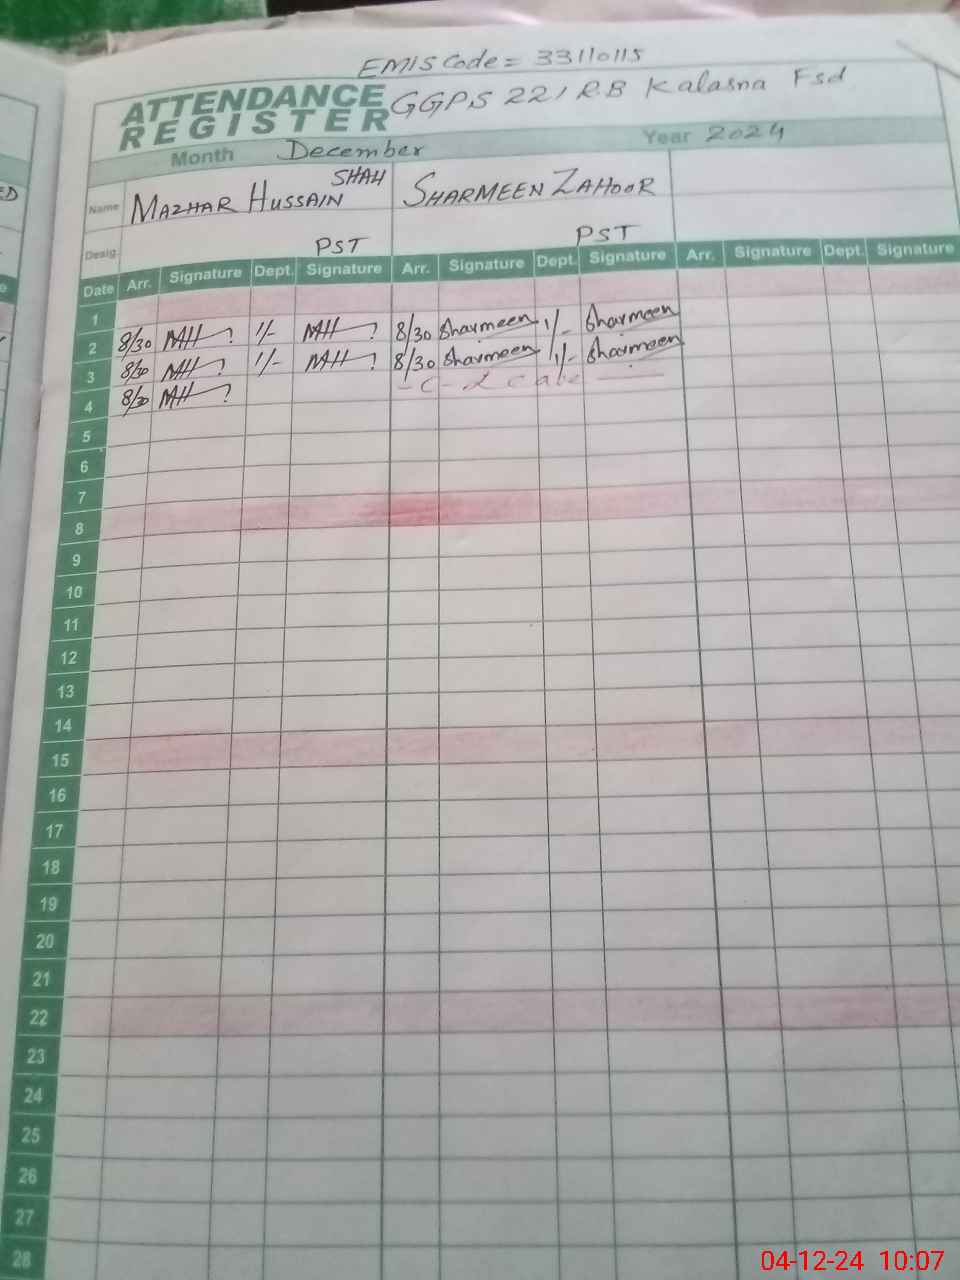 EMIS Code = 33110115
ATTENDANCE REGISTER GGPS 221 R.B Kalasna Fsd
Month December Year 2024
Name MAZHAR HUSSAIN SHAH SHARMEEN ZAHOOR
Desig. PST PST
Date Arr. Signature Dept. Signature Arr. Signature Dept. Signature Arr. Signature Dept. Signature
1
2 8/30 MH 1/- MH 8/30 Sharmeen 1/- Sharmeen
3 8/30 MH 1/- MH 8/30 Sharmeen 1/- Sharmeen
4 8/30 MH
5
6
7
8
9
10
11
12
13
14
15
16
17
18
19
20
21
22
23
24
25
26
27
28
ED
e
04-12-24 10:07